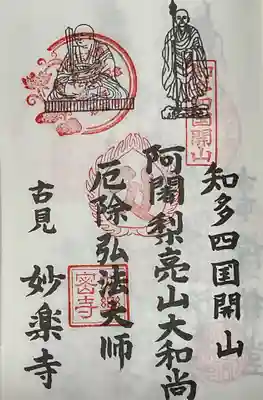 知多四国開山
阿闍梨亮山大和尚
厄除弘法大師
古見
妙楽寺
知多四国開山